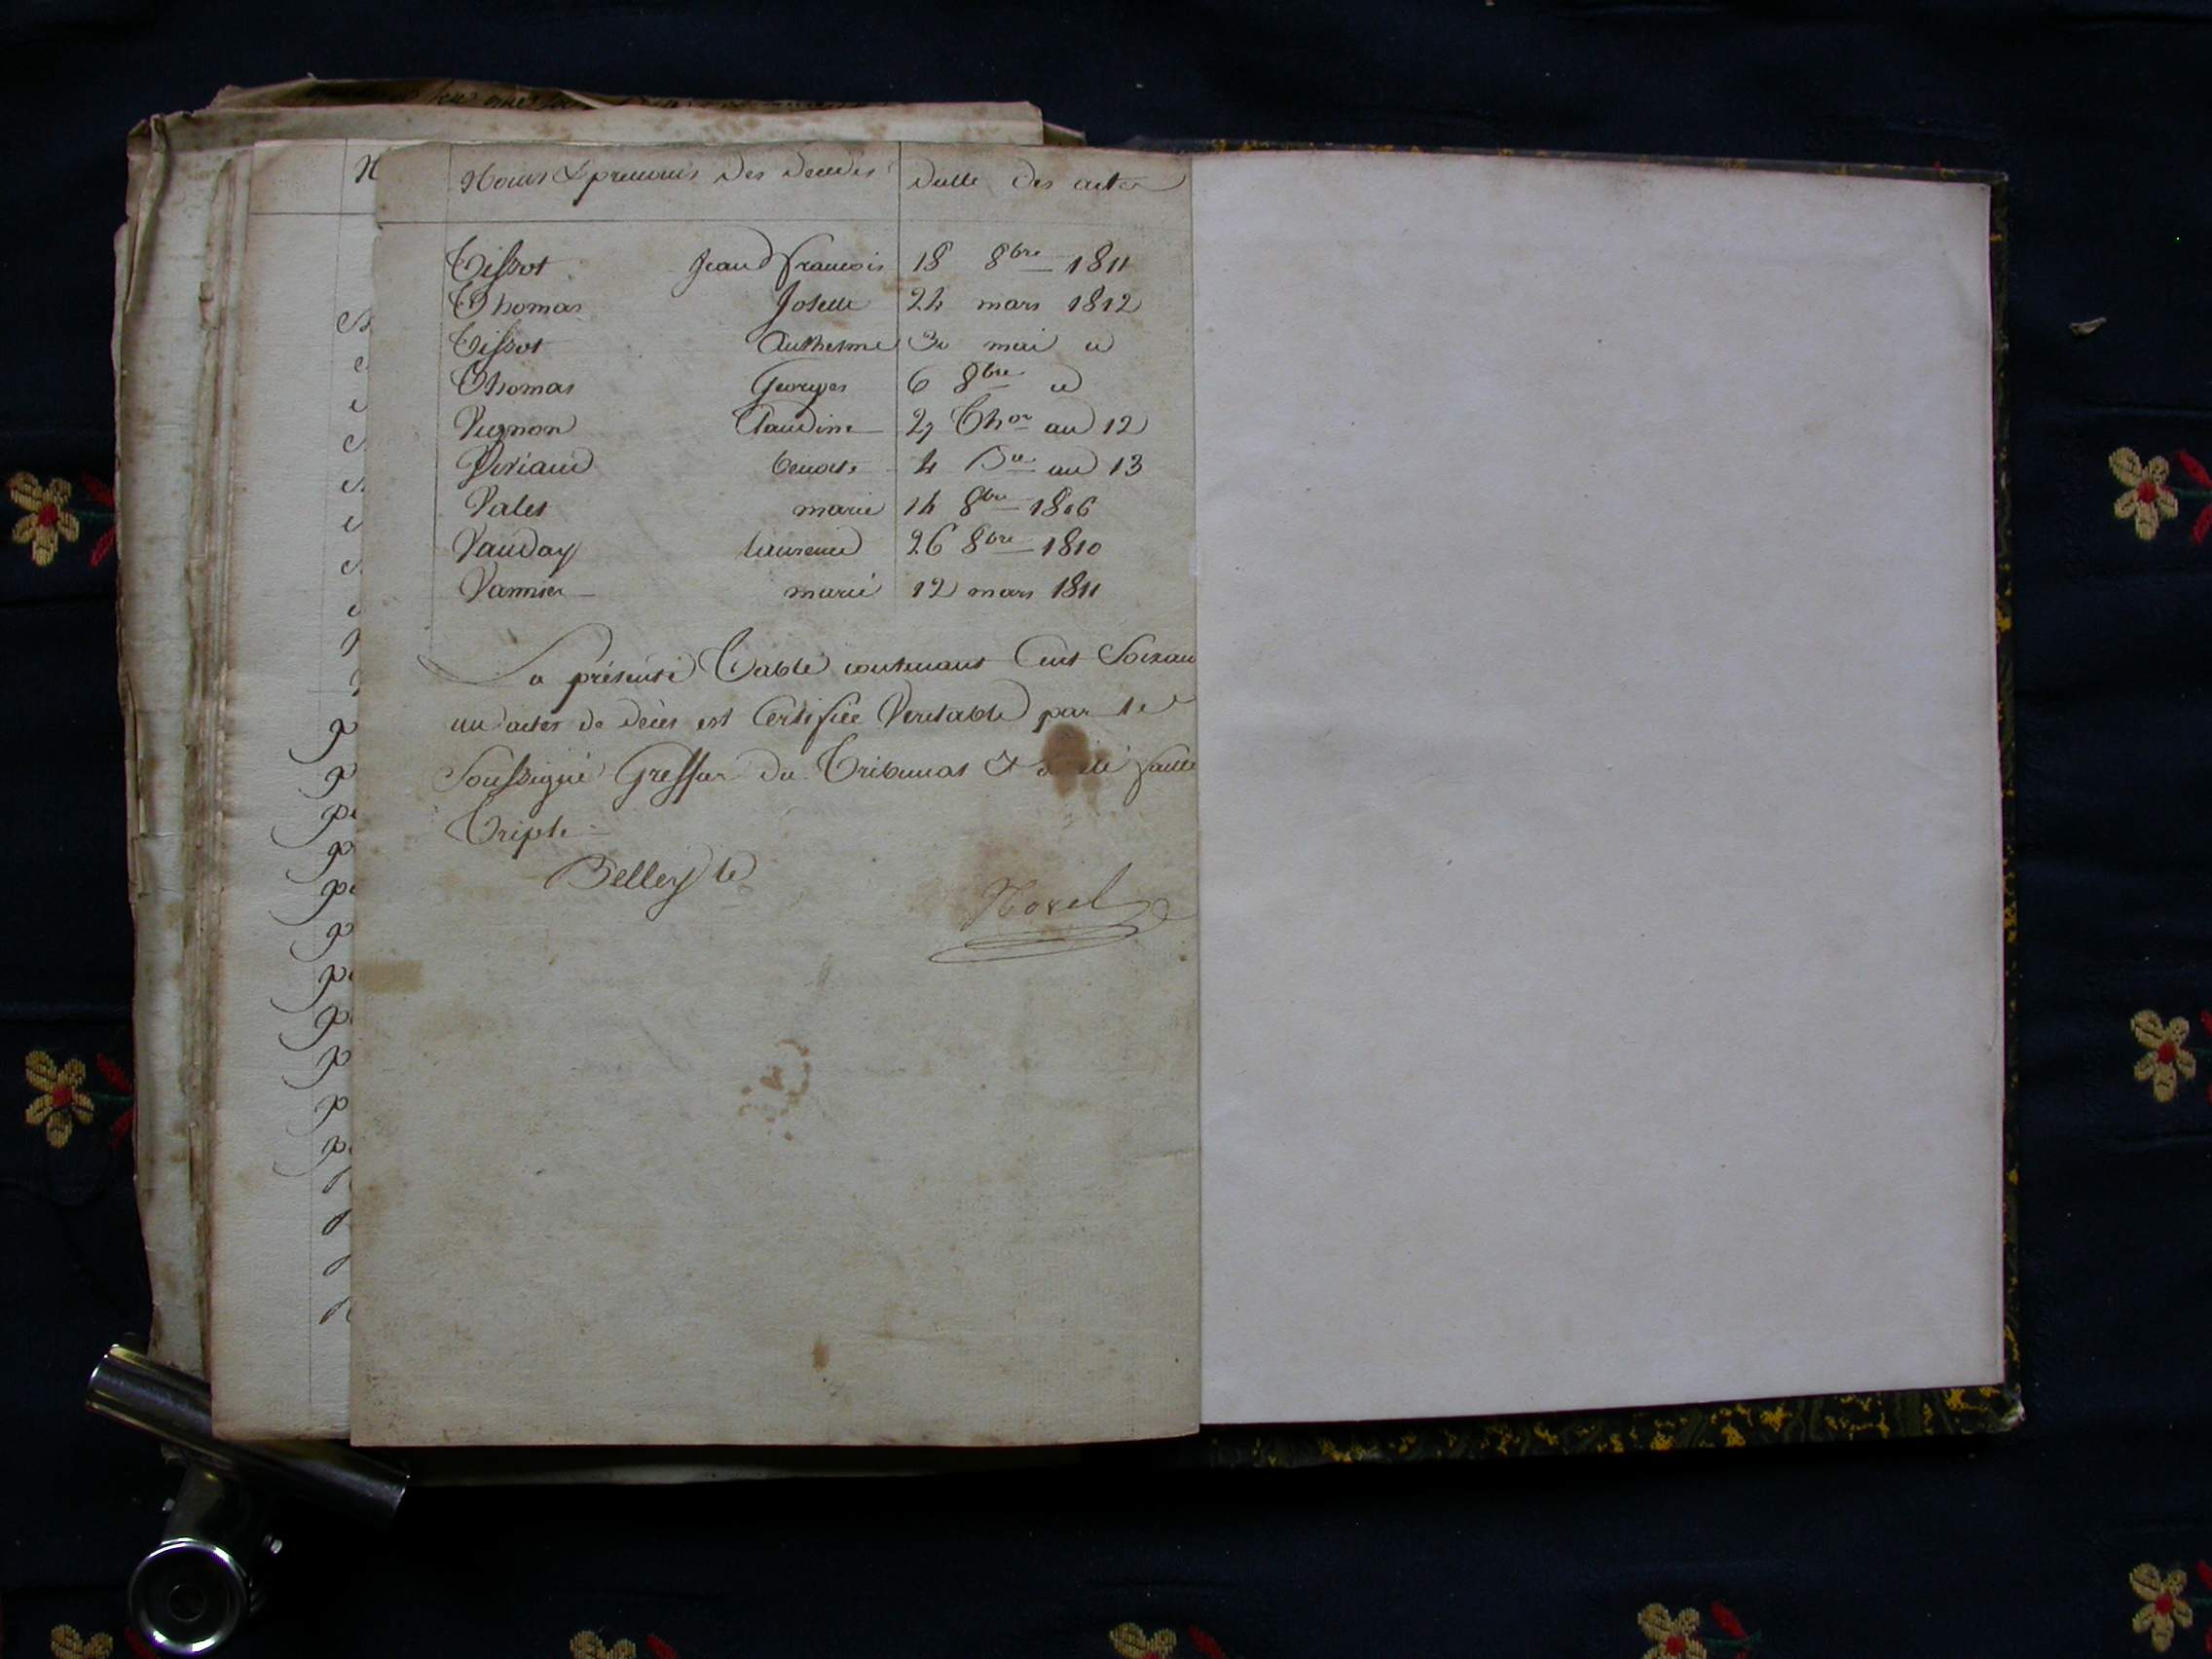 Noms & prenoms des decedés datte des actes
Tissot Jean francois 18 8bre 1811
Thomas Josette 24 mars 1812
Tissot Anthelme 30 mai id
Thomas Georges 6 8bre id
Vugnon Claudine 27 Thor an 12
Viviand benoite 4 Bre an 13
Valet marie 14 8bre 1806
Vauday laurence 26 8bre 1810
Vannier marie 12 mars 1811
La présente Table contenant Cent Soixan
un actes de décès est Certifiée Veritable par le
Soussigné Greffier du Tribunal & été faitte
Triple
Belley le